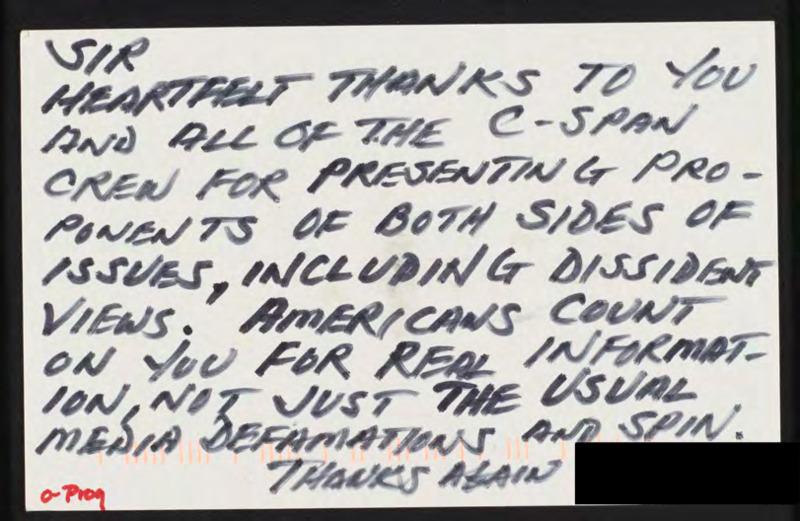 SIR
HEARTFELT THANKS TO YOU
AND ALL OF THE C-SPAN
CREW FOR PRESENTING PRO-
PONENTS OF BOTH SIDES OF
ISSUES, INCLUDING DISSIDENT
VIEWS. AMERICANS COUNT
ON YOU FOR REAL INFORMAT-
ION, NOT JUST THE USUAL
MEDIA DEFAMATIONS AND SPIN.
THANKS AGAIN
o-Prog